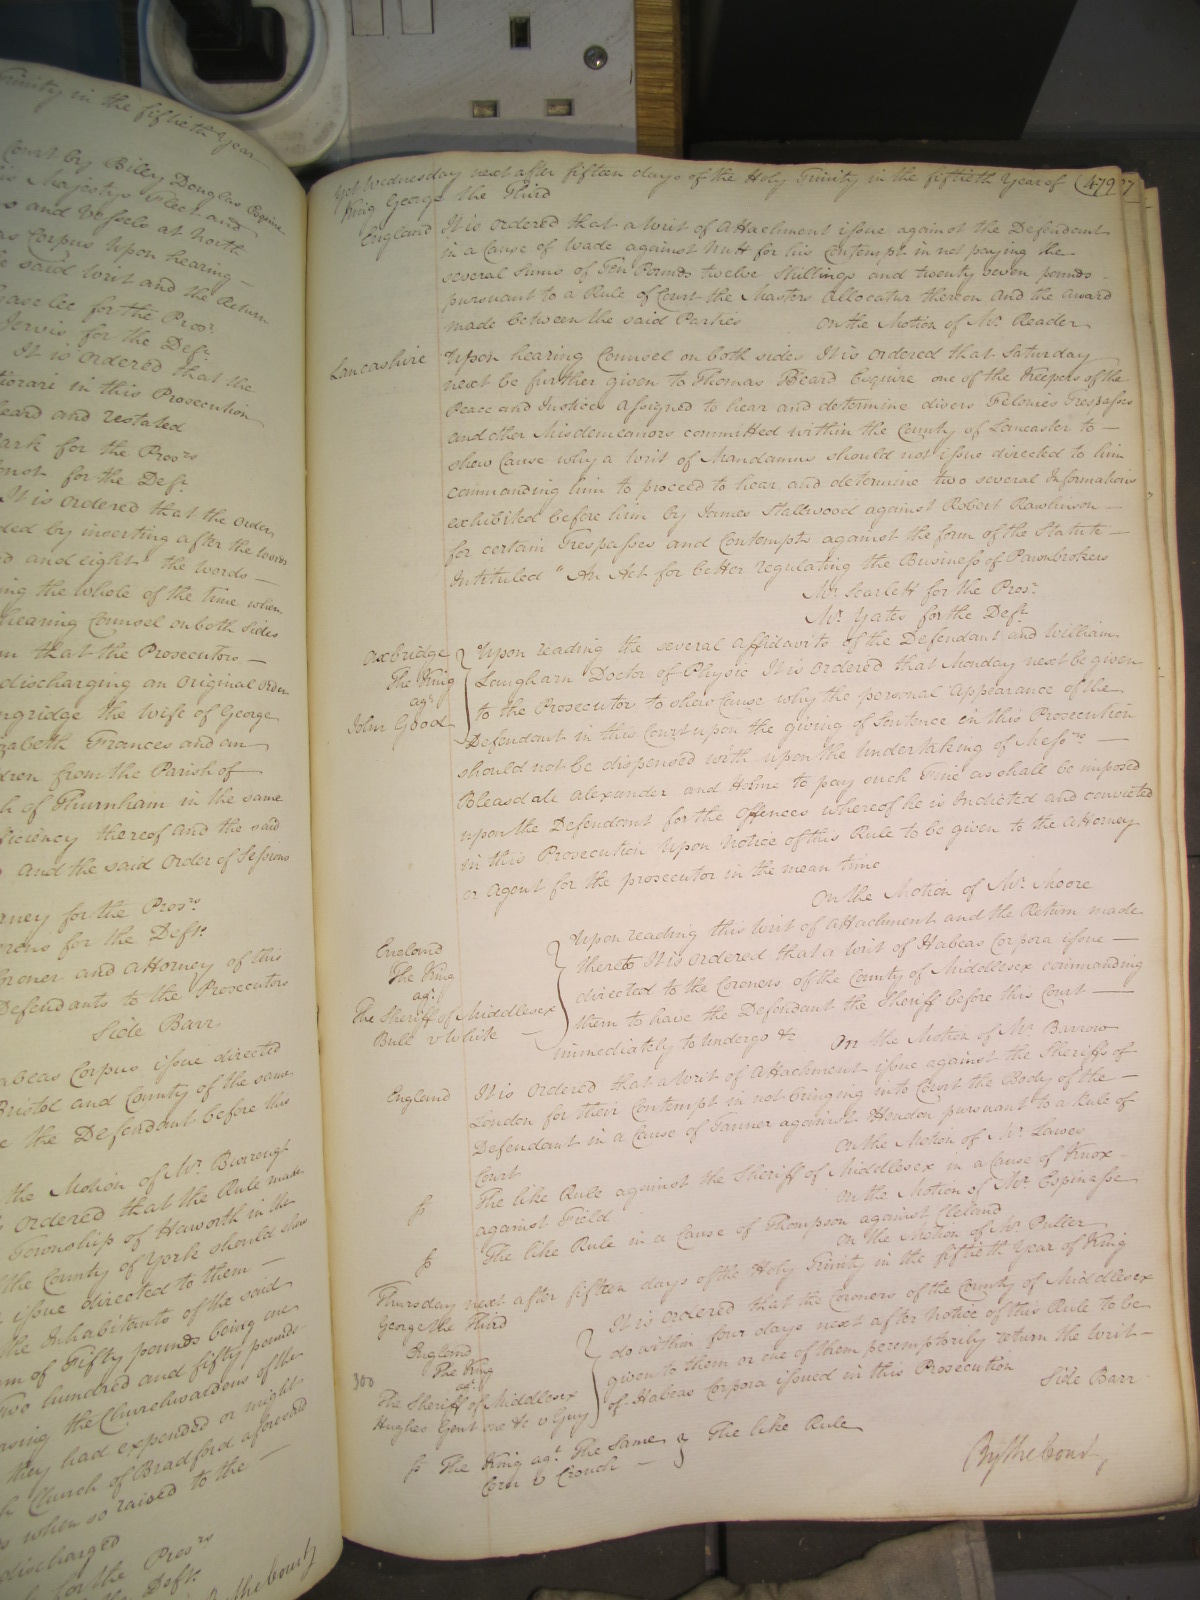 Trinity in the fiftieth Year
Court by Billy Douglas Esquire
is Majestys Fleet and
s and Vessels at North
as Corpus Upon hearing
e said Writ and the Return
lee for the Prosr.
Jervis for the Deft.
It is ordered that the
tiorari in this Prosecution
eard and restated
ark for the Prosrs
for the Deft.
It is ordered that the order
ded by inserting after the words
and eight the words —
ing the whole of the time when
hearing Counsel on both sides
m that the Prosecutors —
discharging an Original order
ngridge the Wife of George
zabeth Frances and an
dren from the Parish of
h of Thurnham in the same
fficiency thereof and the said
and the said Order of Sessions
rney for the Prosrs
rens for the Defts.
oroner and Attorney of this
Defendants to the Prosecutors
Side Barr
abeas Corpus issue directed
Bristol and County of the same
e the Defendant before this
the Motion of Mr. Burrough
ordered that the Rule made
Township of Haworth in the
the County of York should shew
issue directed to them —
the Inhabitants of the said
m of Fifty pounds being one
Two hundred and fifty pounds
the Churchwardens of the
they had expended or might
h Church of Bradford aforesaid
s when so raised to the —
discharged
for the Prosrs
the Deft.
By the Court
Yet Wednesday next after fifteen days of the Holy Trinity in the fiftieth Year of 479
King George the Third
England It is ordered that a Writ of Attachment issue against the Defendant
in a Cause of Wade against Nutt for his Contempt in not paying the
several sums of Ten Pounds twelve shillings and twenty seven pounds
pursuant to a Rule of Court the Masters Allocatur thereon and the award
made between the said Parties On the Motion of Mr. Reader
Lancashire Upon hearing Counsel on both sides It is ordered that Saturday
next be further given to Thomas Beard Esquire one of the Keepers of the
Peace and Justices assigned to hear and determine divers Felonies Trespasses
and other Misdemeanors committed within the County of Lancaster to —
shew Cause why a Writ of Mandamus should not issue directed to him
commanding him to proceed to hear and determine two several Informations
exhibited before him by James Stallwood against Robert Rawlinson —
for certain Trespasses and Contempts against the form of the Statute —
Intituled " An Act for better regulating the Business of Pawnbrokers
Mr. Scarlett for the Prosr.
Mr. Yates for the Deft.
Axbridge
The King
agt.
John Good
Upon reading the several affidavits of the Defendant and William
Langharn Doctor of Physic It is ordered that Monday next be given
to the Prosecutor to shew Cause why the personal Appearance of the
Defendant in this Court upon the giving of Sentence in this Prosecution
should not be dispensed with upon the Undertaking of Messrs. —
Bleasdale Alexander and Holme to pay such Fine as shall be imposed
upon the Defendant for the Offences whereof he is Indicted and convicted
in this Prosecution Upon Notice of this Rule to be given to the Attorney
or Agent for the prosecutor in the mean time
On the Motion of Mr. Moore
England
The King
agt.
The Sheriff of Middlesex
Bule v White
Upon reading this Writ of Attachment and the Return made
thereto It is ordered that a Writ of Habeas Corpora issue —
directed to the Coroners of the County of Middlesex commanding
them to have the Defendant the Sheriff before this Court —
immediately to undergo &c On the Motion of Mr. Barrow
England It is ordered that a Writ of Attachment issue against the Sheriffs of
London for their Contempt in not bringing into Court the Body of the —
Defendant in a Cause of Tanner against Hendon pursuant to a Rule of
Court On the Motion of Mr. Lawes
The like Rule against the Sheriff of Middlesex in a Cause of Knox
against Field On the Motion of Mr. Espinasse
The like Rule in a Cause of Thompson against Cleland
On the Motion of Mr. Puller
Thursday next after fifteen days of the Holy Trinity in the fiftieth Year of King
George the Third
England
The King
agt.
300
The Sheriff of Middlesex
Hughes Gent one &c v Guy
It is ordered that the Coroners of the County of Middlesex
do within four days next after Notice of this Rule to be
given to them or one of them peremptorily return the Writ —
of Habeas Corpora issued in this Prosecution Side Barr
The King agt. The Same
Corn v Crouch —
The like Rule
By the Court